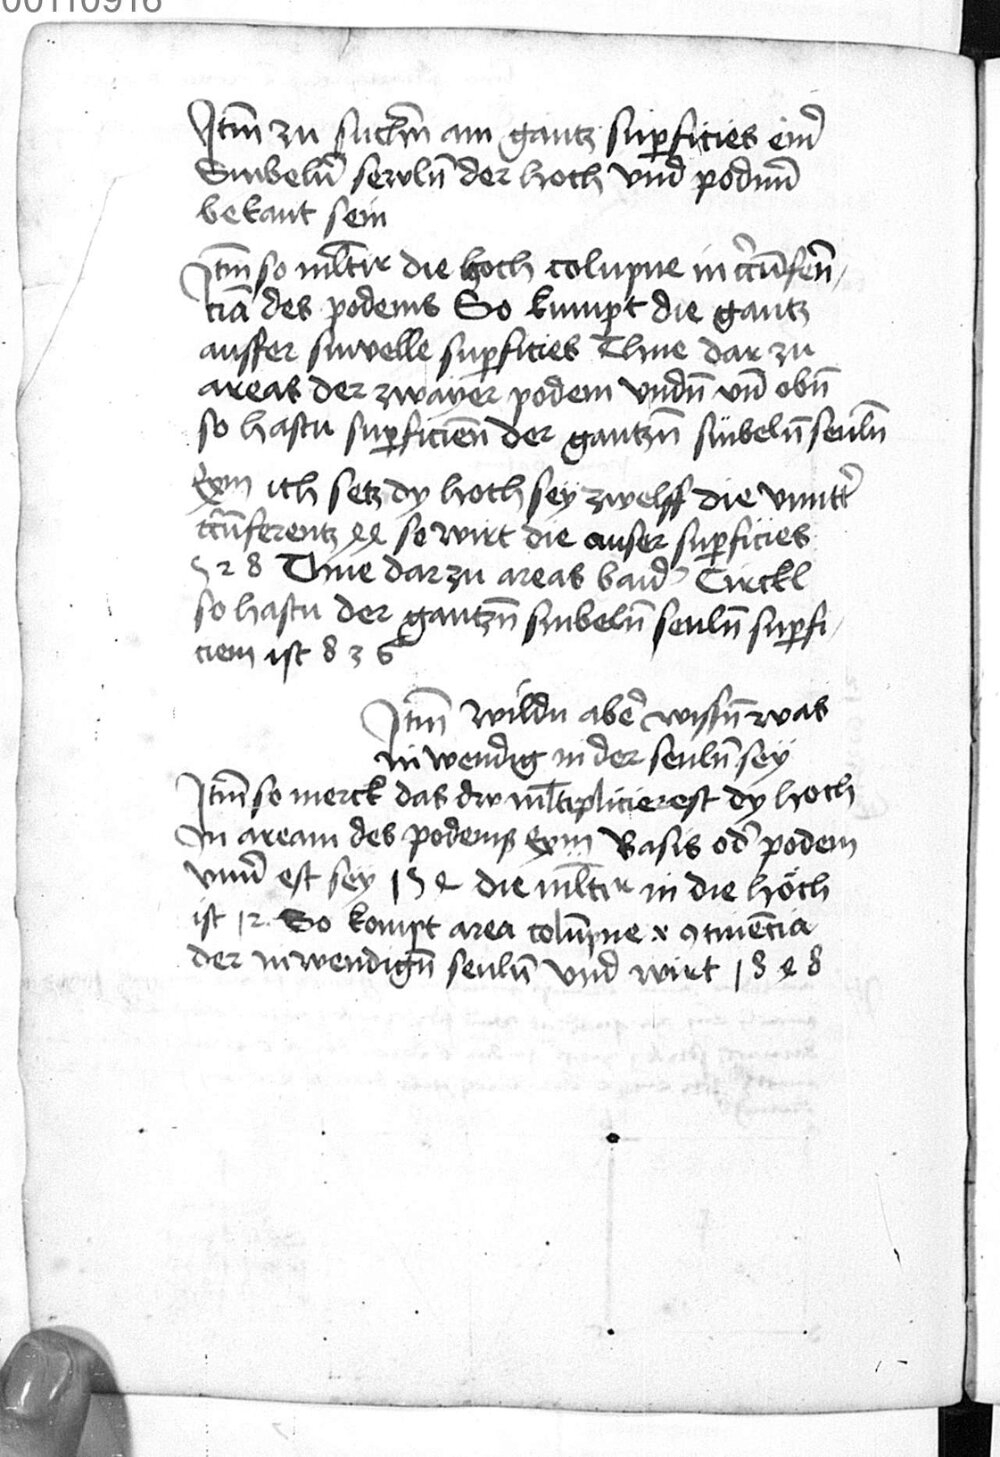 00110916
Itm̄ zu suchn̄ ain gantz supficies ein̄
Sinbeln̄ sewln̄ der hoch vnd podnn̄
bekant sein
Itm̄ so ml̄tir die hoch colupne in cr̄cūfen̄
ciā des podems So kumpt die gantz
ausser sinvelle supficies Thue dar zu
areas der zwayer podem vndn̄ vn̄ obn̄
so hastu supficien̄ der gantzn̄ sinbeln̄ seuln̄
Exm ich setz dy hoch sey zwelff die vnntr̄
cr̄cūferentz 44 so wirt die auser supficies
528 Thue dar zu areas baid Circkl
so hastu der gantzn̄ sinbeln̄ seuln̄ supfi
ciem ist 836
Itm̄ wildu aber wissn̄ was
inwendig in der seuln̄ sey
Itm̄ so merck das dw ml̄tiplicierest dy hoch
in aream des podems Exm Basis od̄ podem
vnnd̄ est sey 154 die ml̄tir in die höch
ist 12 So kompt area colūpne 9tinēcia
der inwendign̄ seuln̄ vnd wirt 1848